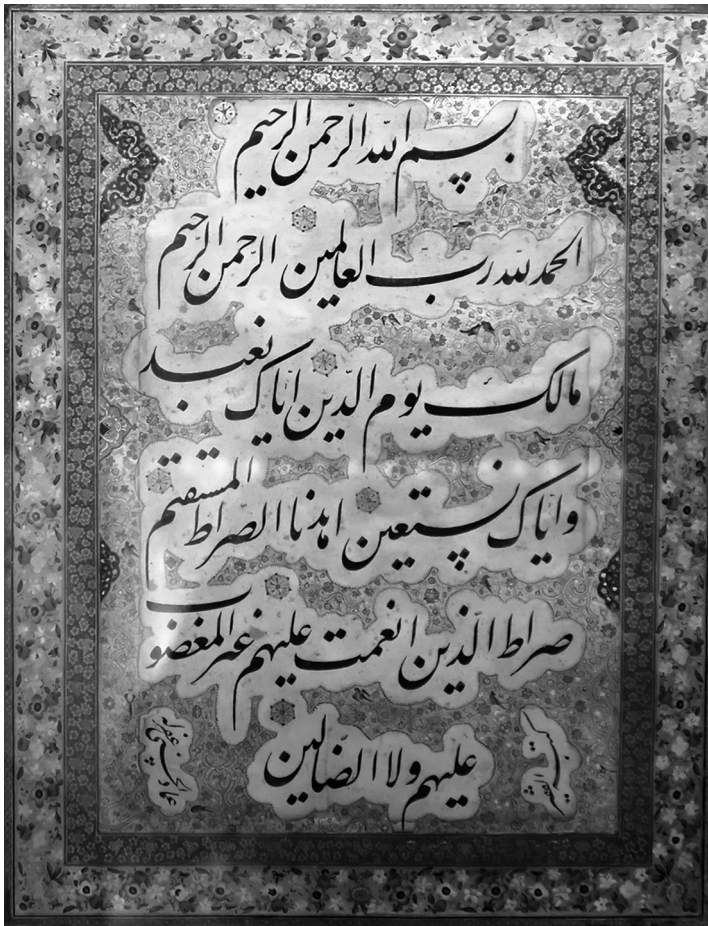 بسم الله الرحمن الرحیم
الحمد لله رب العالمین الرحمن الرحیم
مالک یوم الدین ایاک نعبد
وایاک نستعین اهدنا الصراط المستقیم
صراط الذین انعمت علیهم غیر المغضوب
علیهم ولا الضالین
کتبه الفقیر
عماد الحسنی غفر له